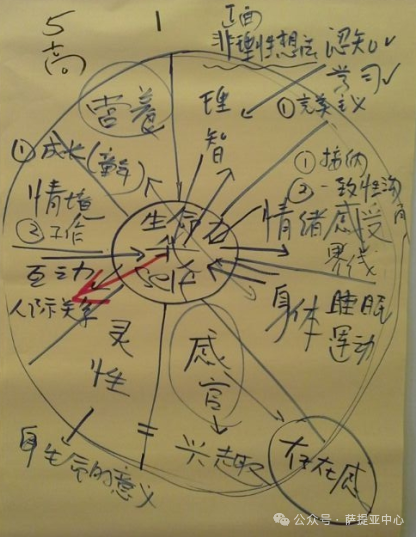 5
高
1
正面
非理性想法
认知
学习
营养
理智
①完美主义
①成长(童年)
①接纳
②一致性沟
情境
②工作
生命力
情绪感受
界线
互动
人际关系
身体 睡眠
运动
灵性
感官
兴趣
存在感
生命的意义
公众号 · 萨提亚中心